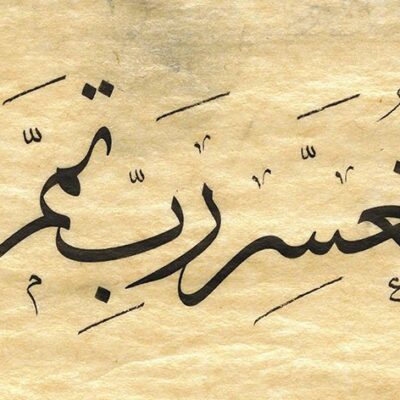 تُعَسِّرْ رَبِّ تَمِّمْ